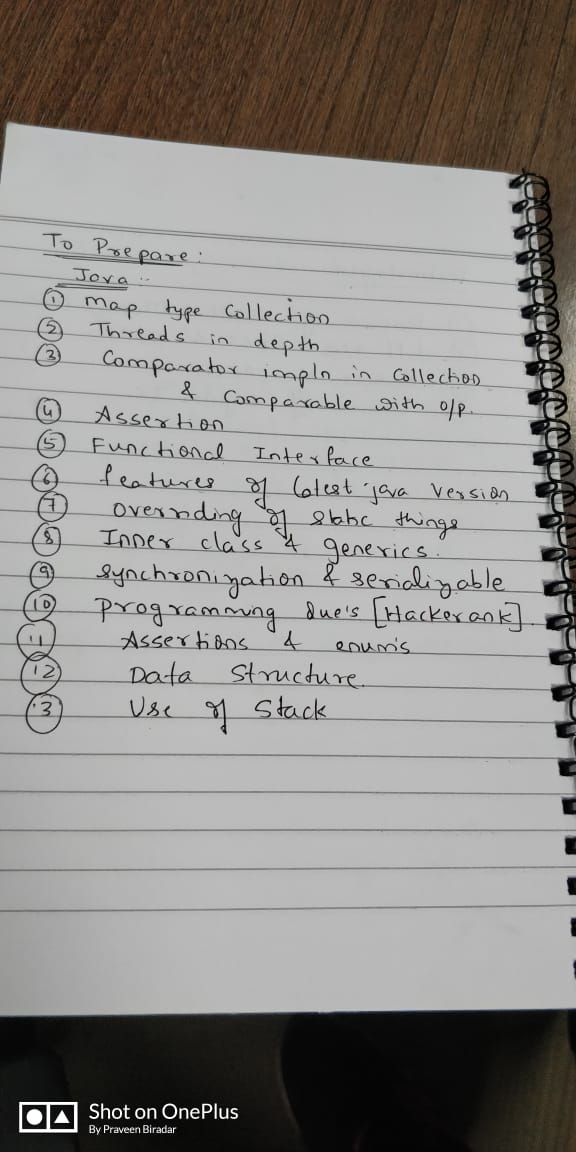 To Prepare:
Java :-
① map type collection
② Threads in depth
③ Comparator impln in collection
& Comparable with o/p.
④ Assertion
⑤ Functional Interface
⑥ features of latest java version
⑦ overriding of static things
⑧ Inner class & generics.
⑨ synchronization & serializable
⑩ programming Que's [Hackerank].
⑪ Assertions & enum's
⑫ Data Structure.
⑬ Use of Stack
Shot on OnePlus
By Praveen Biradar